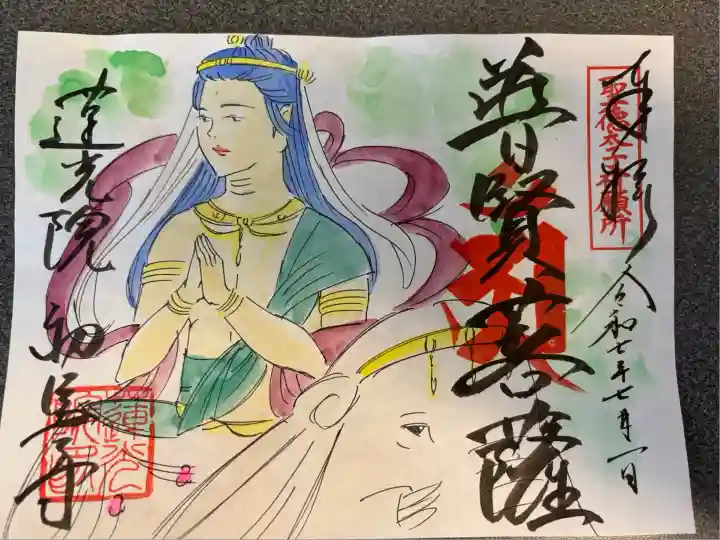 奉拝
聖徳太子祈願所
令和七年七月一日
普賢菩薩
蓮光院 初馬寺